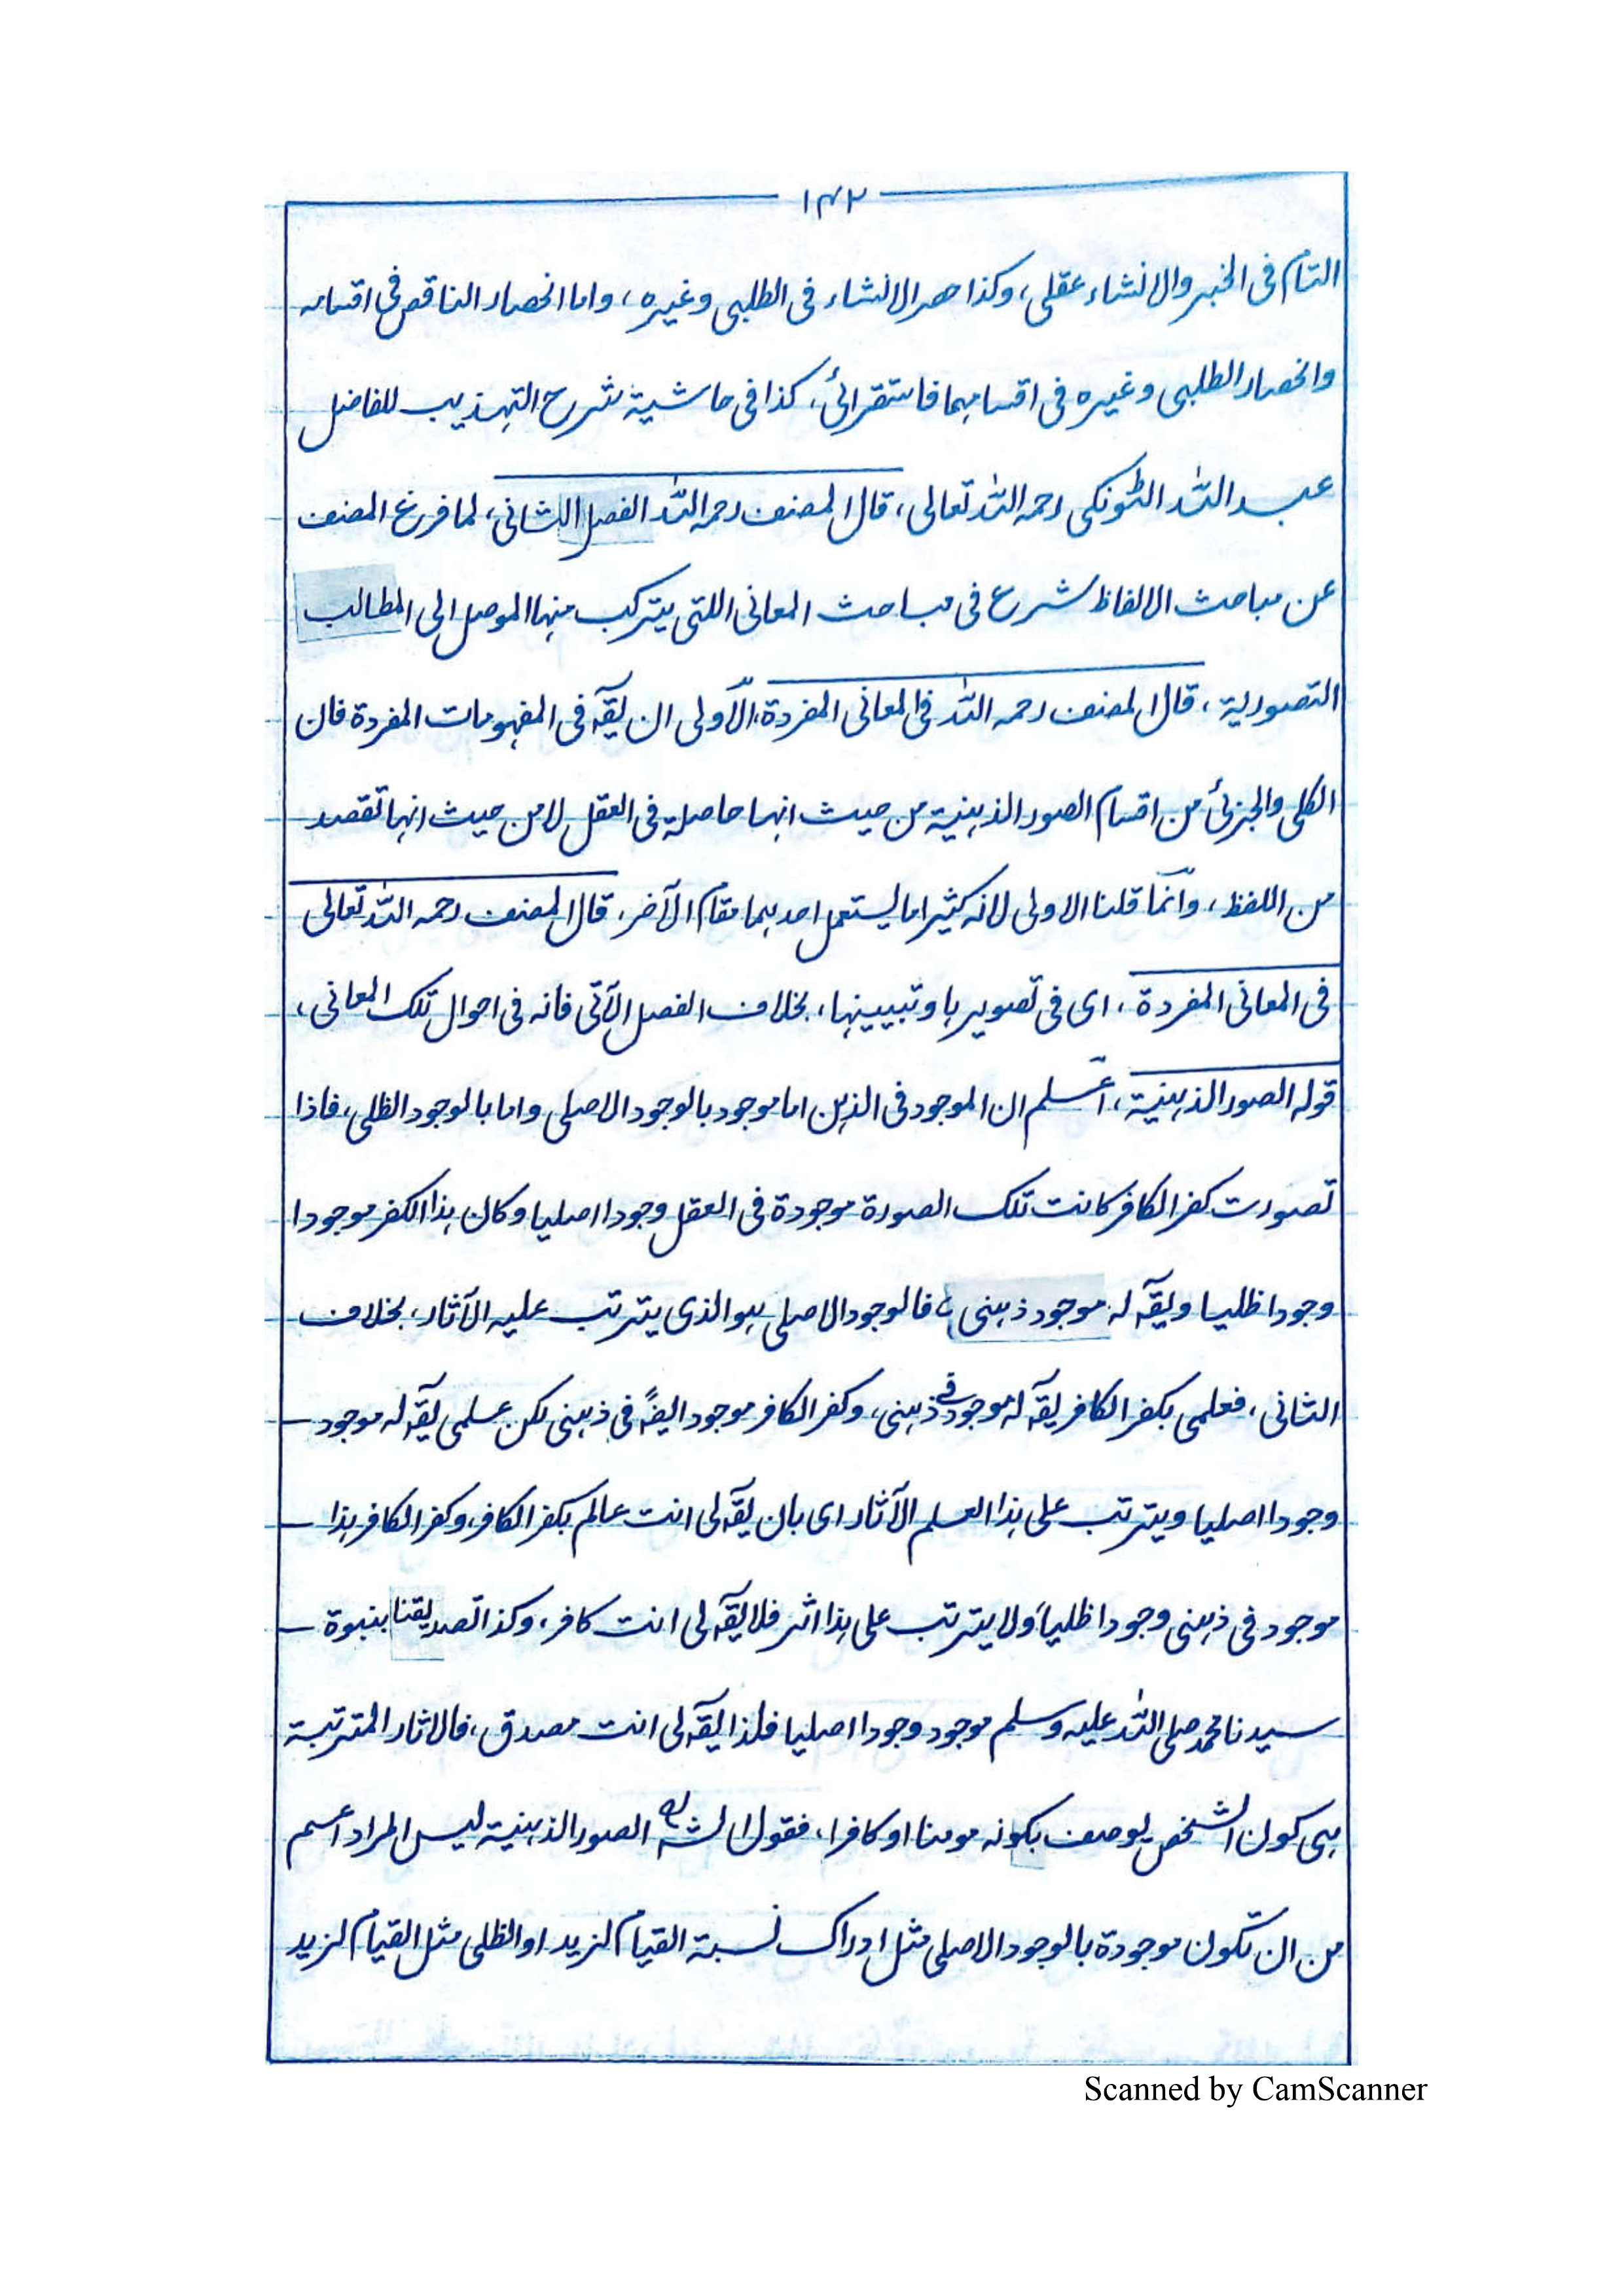 ١٤٢
التام فى الخبر والانشاء عقلى، وكذا حصر الانشاء فى الطلبى وغيره، واما انحصار الناقص فى اقسامه
وانحصار الطلبى وغيره فى اقسامهما فاستقرائى، كذا فى حاشية شرح التهذيب للفاضل
عبد الله الٹونكى رحمه الله تعالى، قال المصنف رحمه الله الفصل الثانى، لما فرغ المصنف
عن مباحث الالفاظ شرع فى مباحث المعانى اللتى يتركب منها الموصل الى المطالب
التصورية، قال المصنف رحمه الله فى المعانى المفردة، الاولى ان يقه فى المفهومات المفردة فان
الكلى والجزئى من اقسام الصور الذهنية من حيث انها حاصلة فى العقل لا من حيث انها تقصد
من اللفظ، وانما قلنا الاولى لانه كثيرا ما يستعمل احدهما مقام الآخر، قال المصنف رحمه الله تعالى
فى المعانى المفردة، اى فى تصويرها وتبيينها، بخلاف الفصل الآتى فانه فى احوال تلك المعانى،
قوله الصور الذهنية، اعلم ان الموجود فى الذهن اما موجود بالوجود الاصلى واما بالوجود الظلى، فاذا
تصورت كفر الكافر كانت تلك الصورة موجودة فى العقل وجودا اصليا وكان هذا الكفر موجودا
وجودا ظليا ويقه له موجود ذهنى، فالوجود الاصلى هو الذى يترتب عليه الآثار، بخلاف
الثانى، فعلمى بكفر الكافر يقه له موجود فى ذهنى، وكفر الكافر موجود ايضً فى ذهنى لكن علمى يقه له موجود –
وجودا اصليا ويترتب على هذا العلم الآثار اى بان يقه لى انت عالم بكفر الكافر، وكفر الكافر هذا –
موجود فى ذهنى وجودا ظلياً ولا يترتب على هذا اثر فلا يقه لى انت كافر، وكذا تصديقنا بنبوة –
سيدنا محمد صلى الله عليه وسلم موجود وجودا اصليا فلذا يقه لى انت مصدق، فالاثار المترتبة
هى كون الشخص يوصف بكونه مومنا او كافرا، فقول الشه الصور الذهنية ليس المراد اعم
من ان تكون موجودة بالوجود الاصلى مثل ادراك نسبة القيام لزيد او الظلى مثل القيام لزيد
Scanned by CamScanner